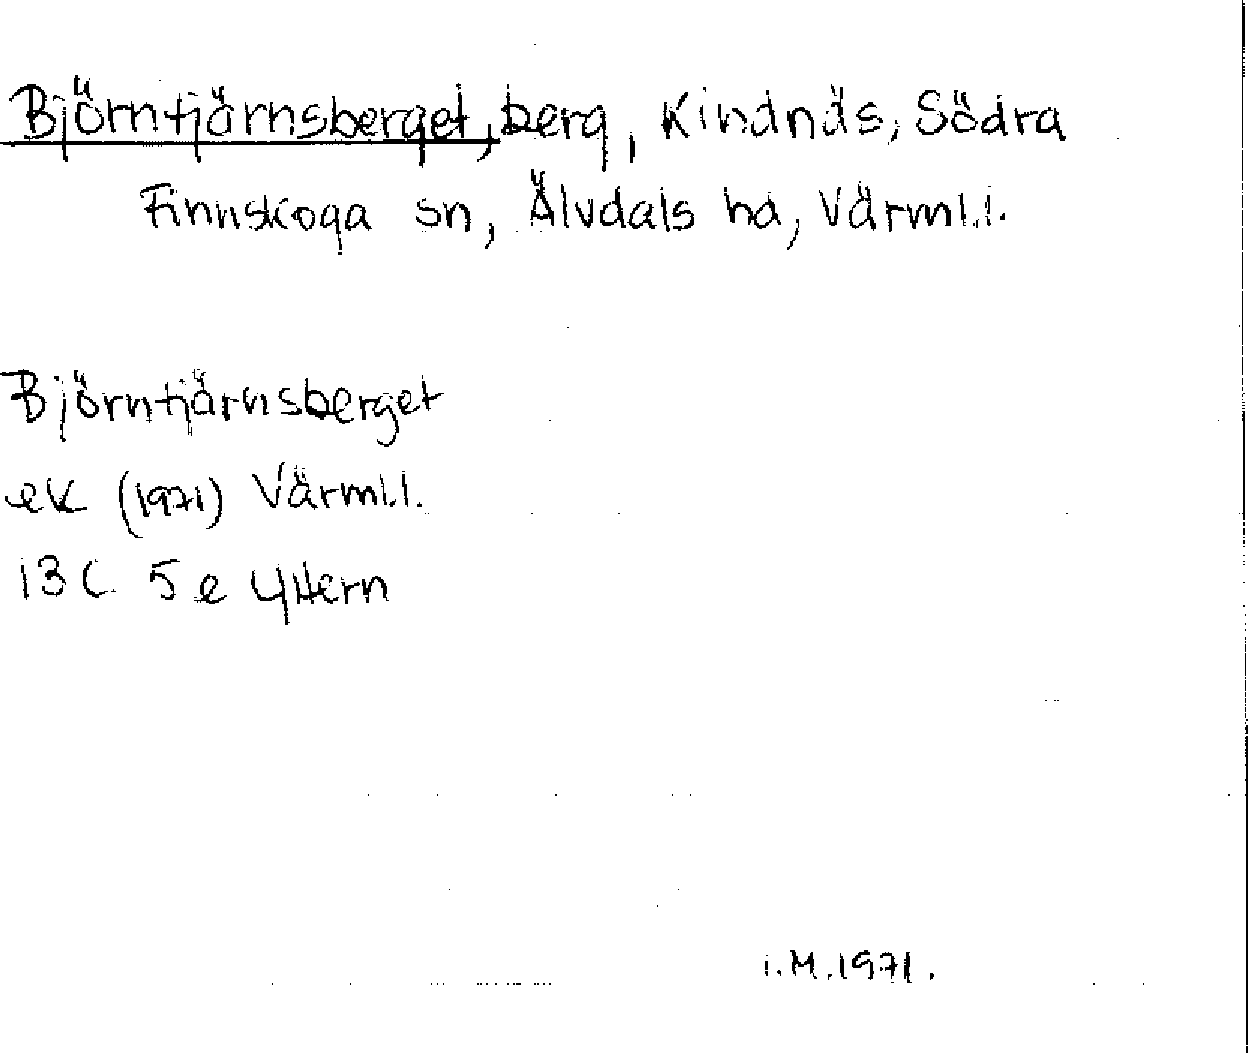 Björntjärnsberget, berg, Kindnäs, Södra
Finnskoga sn, Älvdals hd, Värml.l.
Björntjärnsberget
ek (1971) Värml.l.
13 C 5 e Yttern
i.M.1971.